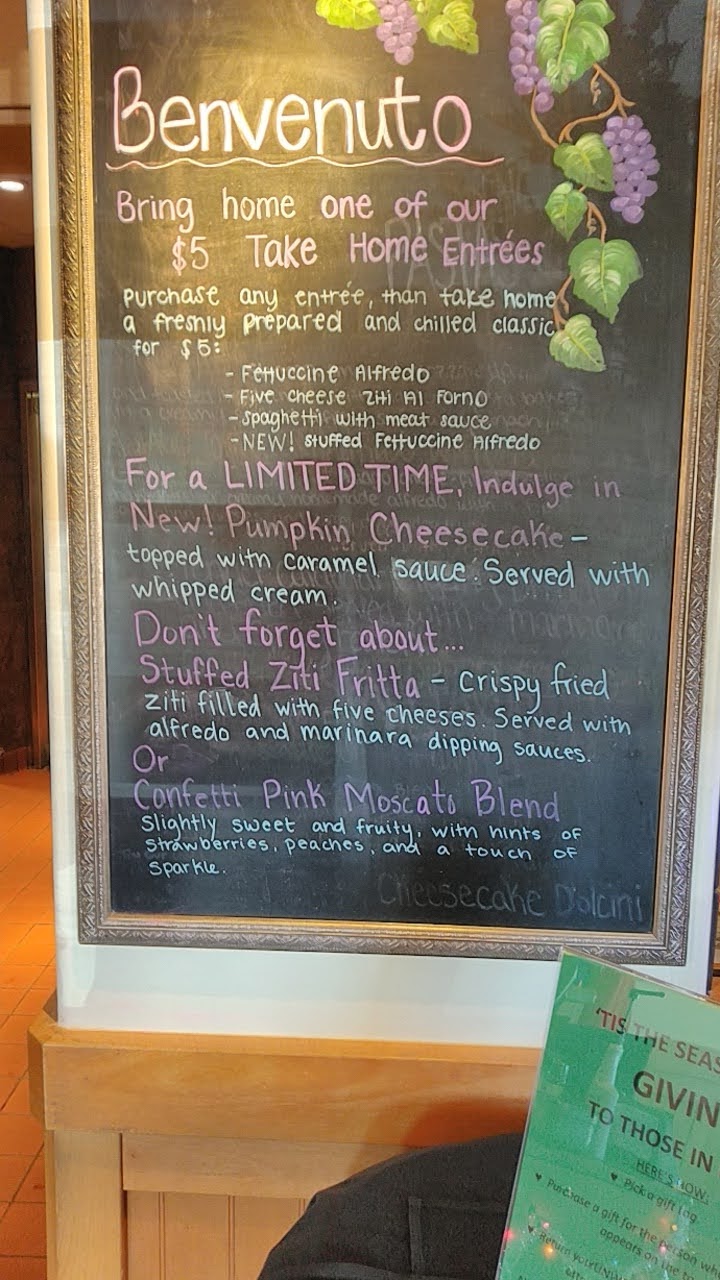 Benvenuto
Bring home one of our
$5 Take Home Entrées
Purchase any entrée, than take home
a freshly prepared and chilled classic
for $5:
- Fettuccine Alfredo
- Five cheese Ziti Al Forno
- Spaghetti with meat sauce
- NEW! Stuffed Fettuccine Alfredo
For a LIMITED TIME, Indulge in
New! Pumpkin Cheesecake -
topped with caramel sauce. Served with
whipped cream.
Don't forget about...
Stuffed Ziti Fritta - crispy fried
ziti filled with five cheeses. Served with
alfredo and marinara dipping sauces.
Or
Confetti Pink Moscato Blend
Slightly sweet and fruity, with hints of
strawberries, peaches, and a touch of
sparkle.
Cheesecake Dolcini
'TIS THE SEAS
GIVIN
TO THOSE IN
HERE'S HOW:
♥ Pick a gift tag
♥ Purchase a gift for the person wh
appears on the
♥ Return your